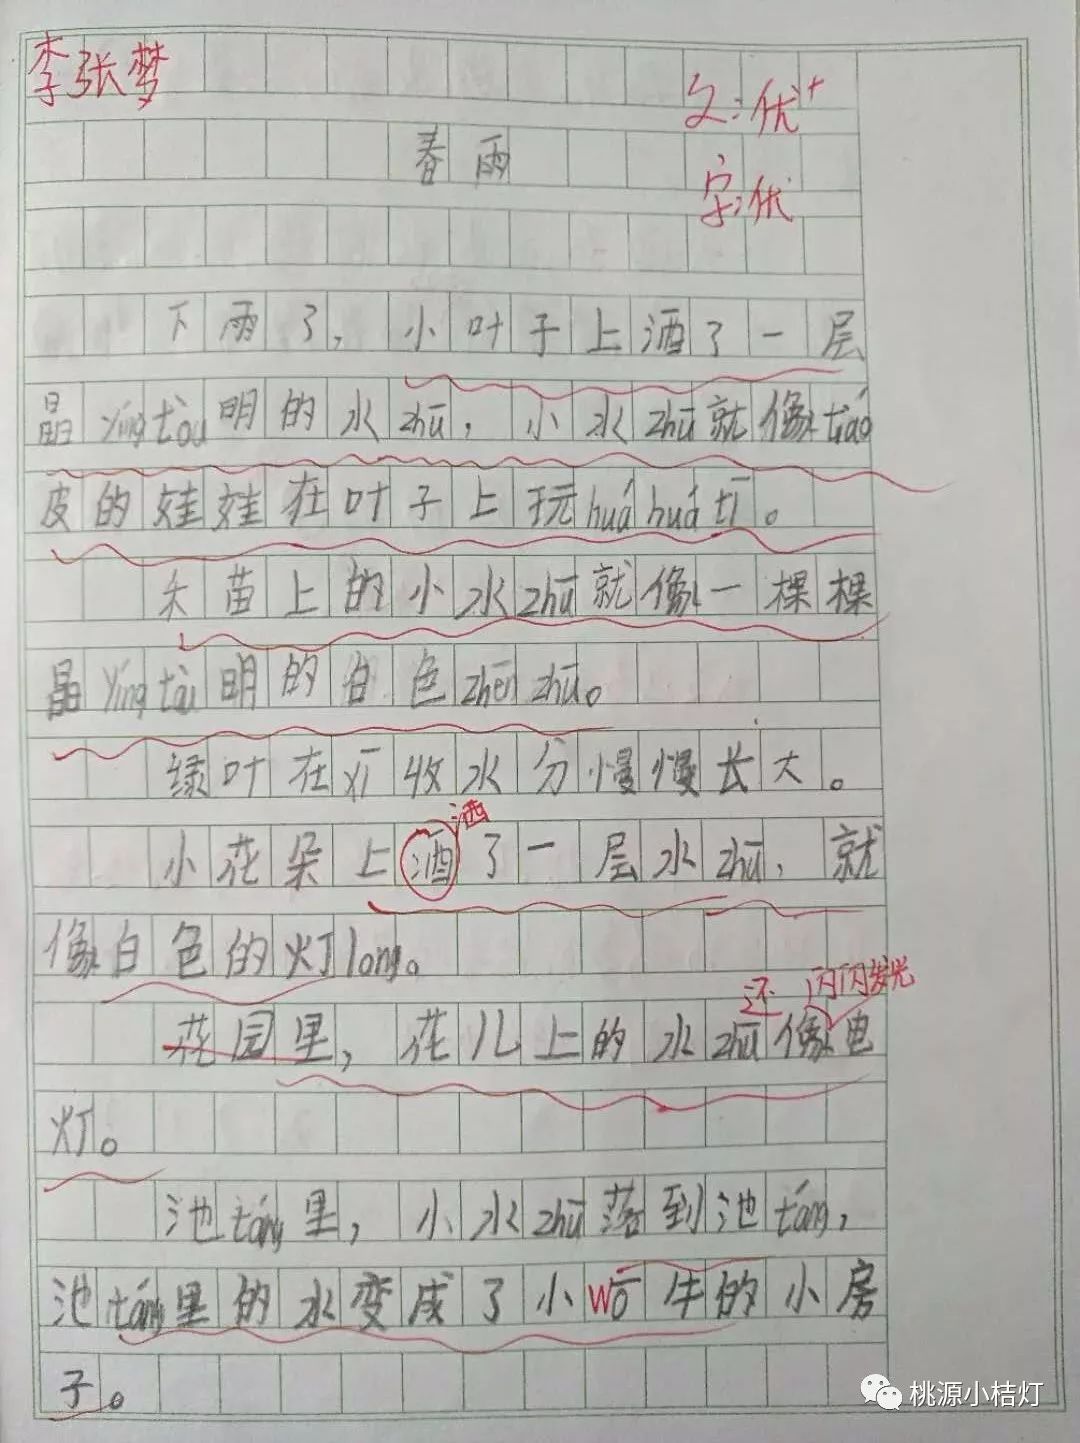 李张梦
文:优+
春雨
字:优
下雨了，小叶子上酒了一层
晶yíngtòu明的水zhū，小水zhū就像tiáo
皮的娃娃在叶子上玩huáhuátī。
禾苗上的小水zhū就像一棵棵
晶yíngtòu明的白色zhēnzhū。
绿叶在xī收水分慢慢长大。
洒
小花朵上酒了一层水zhū，就
像白色的灯long。
还 闪闪发光
花园里，花儿上的水zhū像电
灯。
池táng里，小水zhū落到池táng，
池táng里的水变成了小wō牛的小房
子。
桃源小桔灯